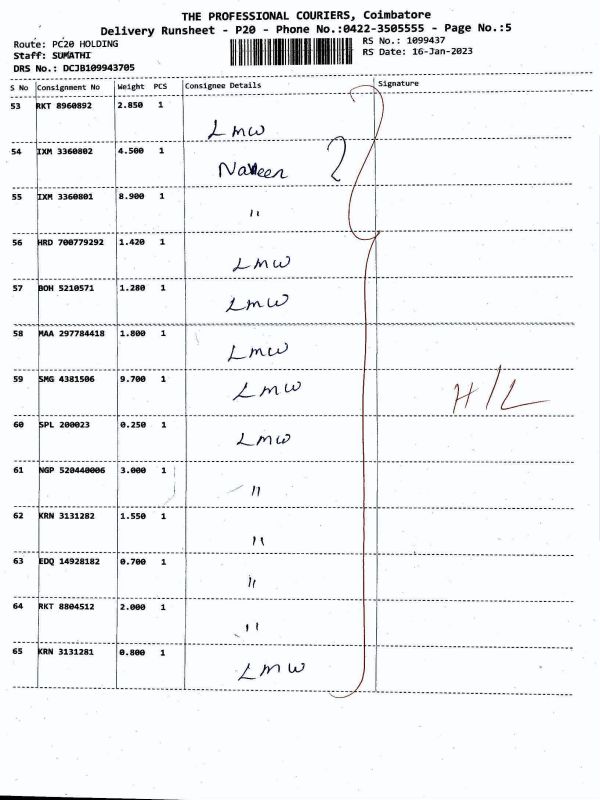 THE PROFESSIONAL COURIERS, Coimbatore
Delivery Runsheet - P20 - Phone No.:0422-3505555 - Page No.:5
Route: PC20 HOLDING
RS No.: 1099437
Staff: SUMATHI
RS Date: 16-Jan-2023
DRS No.: DCJB109943705
S No Consignment No Weight PCS Consignee Details Signature
53 RKT 8960892 2.850 1
LMW
54 IXM 3360802 4.500 1
Naveen
55 IXM 3360801 8.900 1
"
56 HRD 700779292 1.420 1
LMW
57 BOH 5210571 1.280 1
LMW
58 MAA 297784418 1.800 1
LMW
59 SMG 4381506 9.700 1
LMW
H/L
60 SPL 200023 0.250 1
LMW
61 NGP 520440006 3.000 1
"
62 KRN 3131282 1.550 1
"
63 EDQ 14928182 0.700 1
"
64 RKT 8804512 2.000 1
"
65 KRN 3131281 0.800 1
LMW